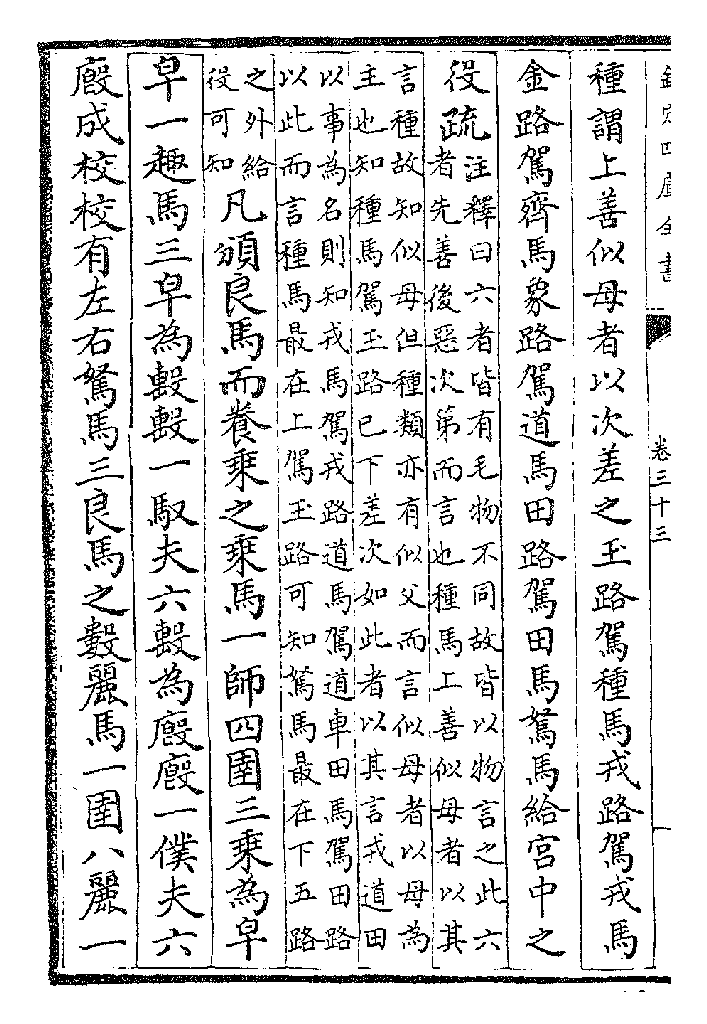 欽定四庫全書
卷三十三
種謂上善似母者以次差之玉路駕種馬戎路駕戎馬
金路駕齊馬象路駕道馬田路駕田馬駑馬給宮中之
役疏
注釋曰六者皆有毛物不同故皆以物言之此六
者先善後惡次第而言也種馬上善似母者以其
言種故知似母但種類亦有似父而言似母者以母為
主也知種馬駕玉路已下差次如此者以其言戎道田
以事為名則知戎馬駕戎路道馬駕道車田馬駕田路
以此而言種馬最在上駕玉路可知駑馬最在下五路
之外給
役可知
凡頒良馬而養乘之乘馬一師四圉三乘為皁
皁一趣馬三皁為𣪠𣪠一馭夫六𣪠為廄廄一僕夫六
廄成校校有左右駑馬三良馬之數麗馬一圉八麗一